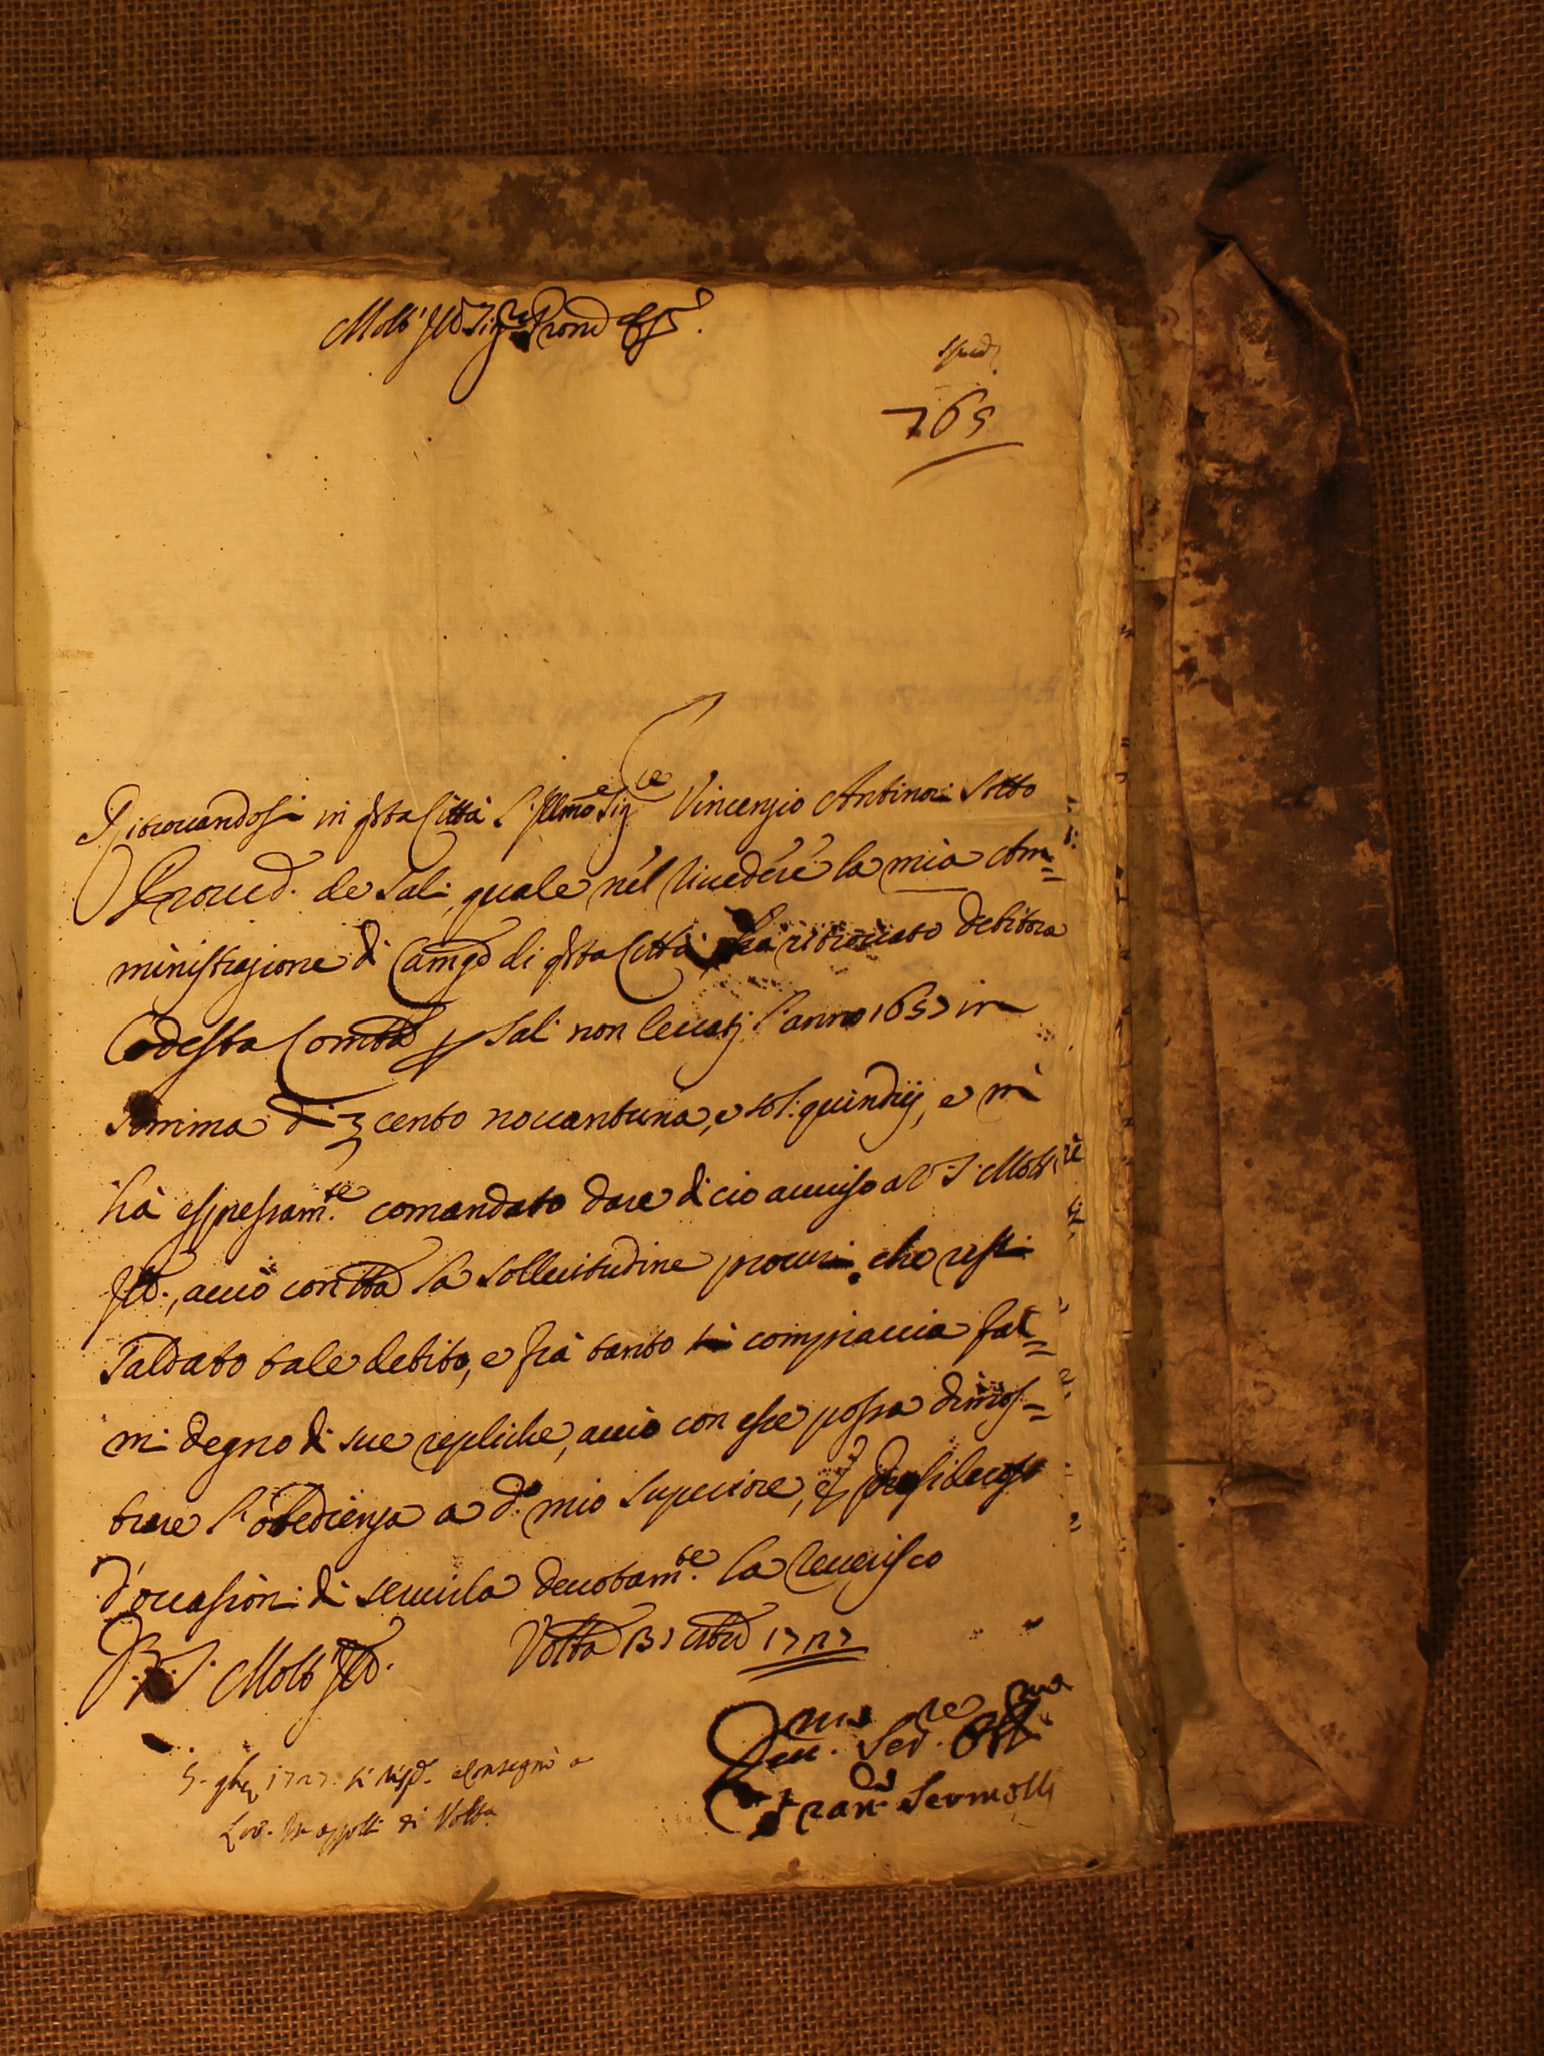 Molt' Ill Sig.re Pron
sped.
765
Ritrovandosi in qsta Città l'Illmo Sig.re Vincenzio Antinori Sotto
Proved. de Sali, quale nel rivedere la mia Am=
ministrazione di di qsta Città, ha ritrovato debitora
Codesta Comtà p Sali non levati l'anno 1657 in
Somma di cento novantuna, e sol: quindij, e mi
hà espressam.te comandato dare di cio avviso a V.S. Molt'
Ill., acciò con tta la sollecitudine procuri che resti
Saldato tale debito, e frà tanto si compiaccia far=
mi degno di sue repliche, acciò con esse possa dimos=
trare l'obedienza a d.o mio Superiore, e
d'occasion di servirla devotam.te la reverisco
V.S. Molt' Ill. Voltta 1727
Dev. Ser. Obb
5. 9bre 1727. si risp. e consegnò a
di Volta
Fran. Sermolli